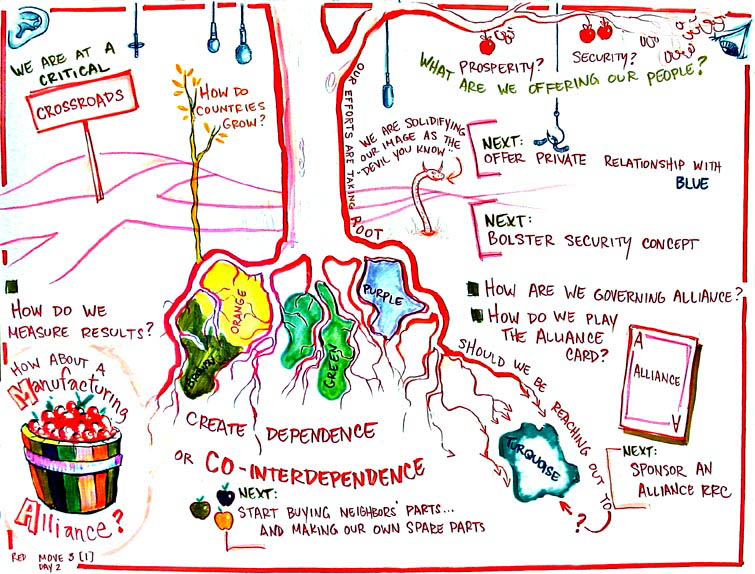 WE ARE AT A
CRITICAL
CROSSROADS
HOW DO
COUNTRIES
GROW?
OUR EFFORTS ARE TAKING ROOT
PROSPERITY?
SECURITY?
WHAT ARE WE OFFERING OUR PEOPLE?
WE ARE SOLIDIFYING
OUR IMAGE AS THE
"DEVIL YOU KNOW"
NEXT:
OFFER PRIVATE RELATIONSHIP WITH
BLUE
NEXT:
BOLSTER SECURITY CONCEPT
HOW DO WE
MEASURE RESULTS?
ORANGE
BROWN
GREEN
PURPLE
HOW ARE WE GOVERNING ALLIANCE?
HOW DO WE PLAY
THE ALLIANCE
CARD?
A
ALLIANCE
A
SHOULD WE BE REACHING OUT TO
?
TURQUOISE
HOW ABOUT A
Manufacturing
Alliance?
CREATE DEPENDENCE
OR CO-INTERDEPENDENCE
NEXT:
START BUYING NEIGHBORS' PARTS...
AND MAKING OUR OWN SPARE PARTS
NEXT:
SPONSOR AN
ALLIANCE RRC
RED MOVE 3 [1]
DAY 2